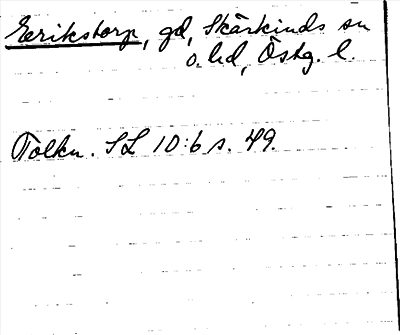 Eerikstorp, gd, Skärkinds sn
o. hd, Östg. l.
Tolkn. SL 10:6 s. 49.